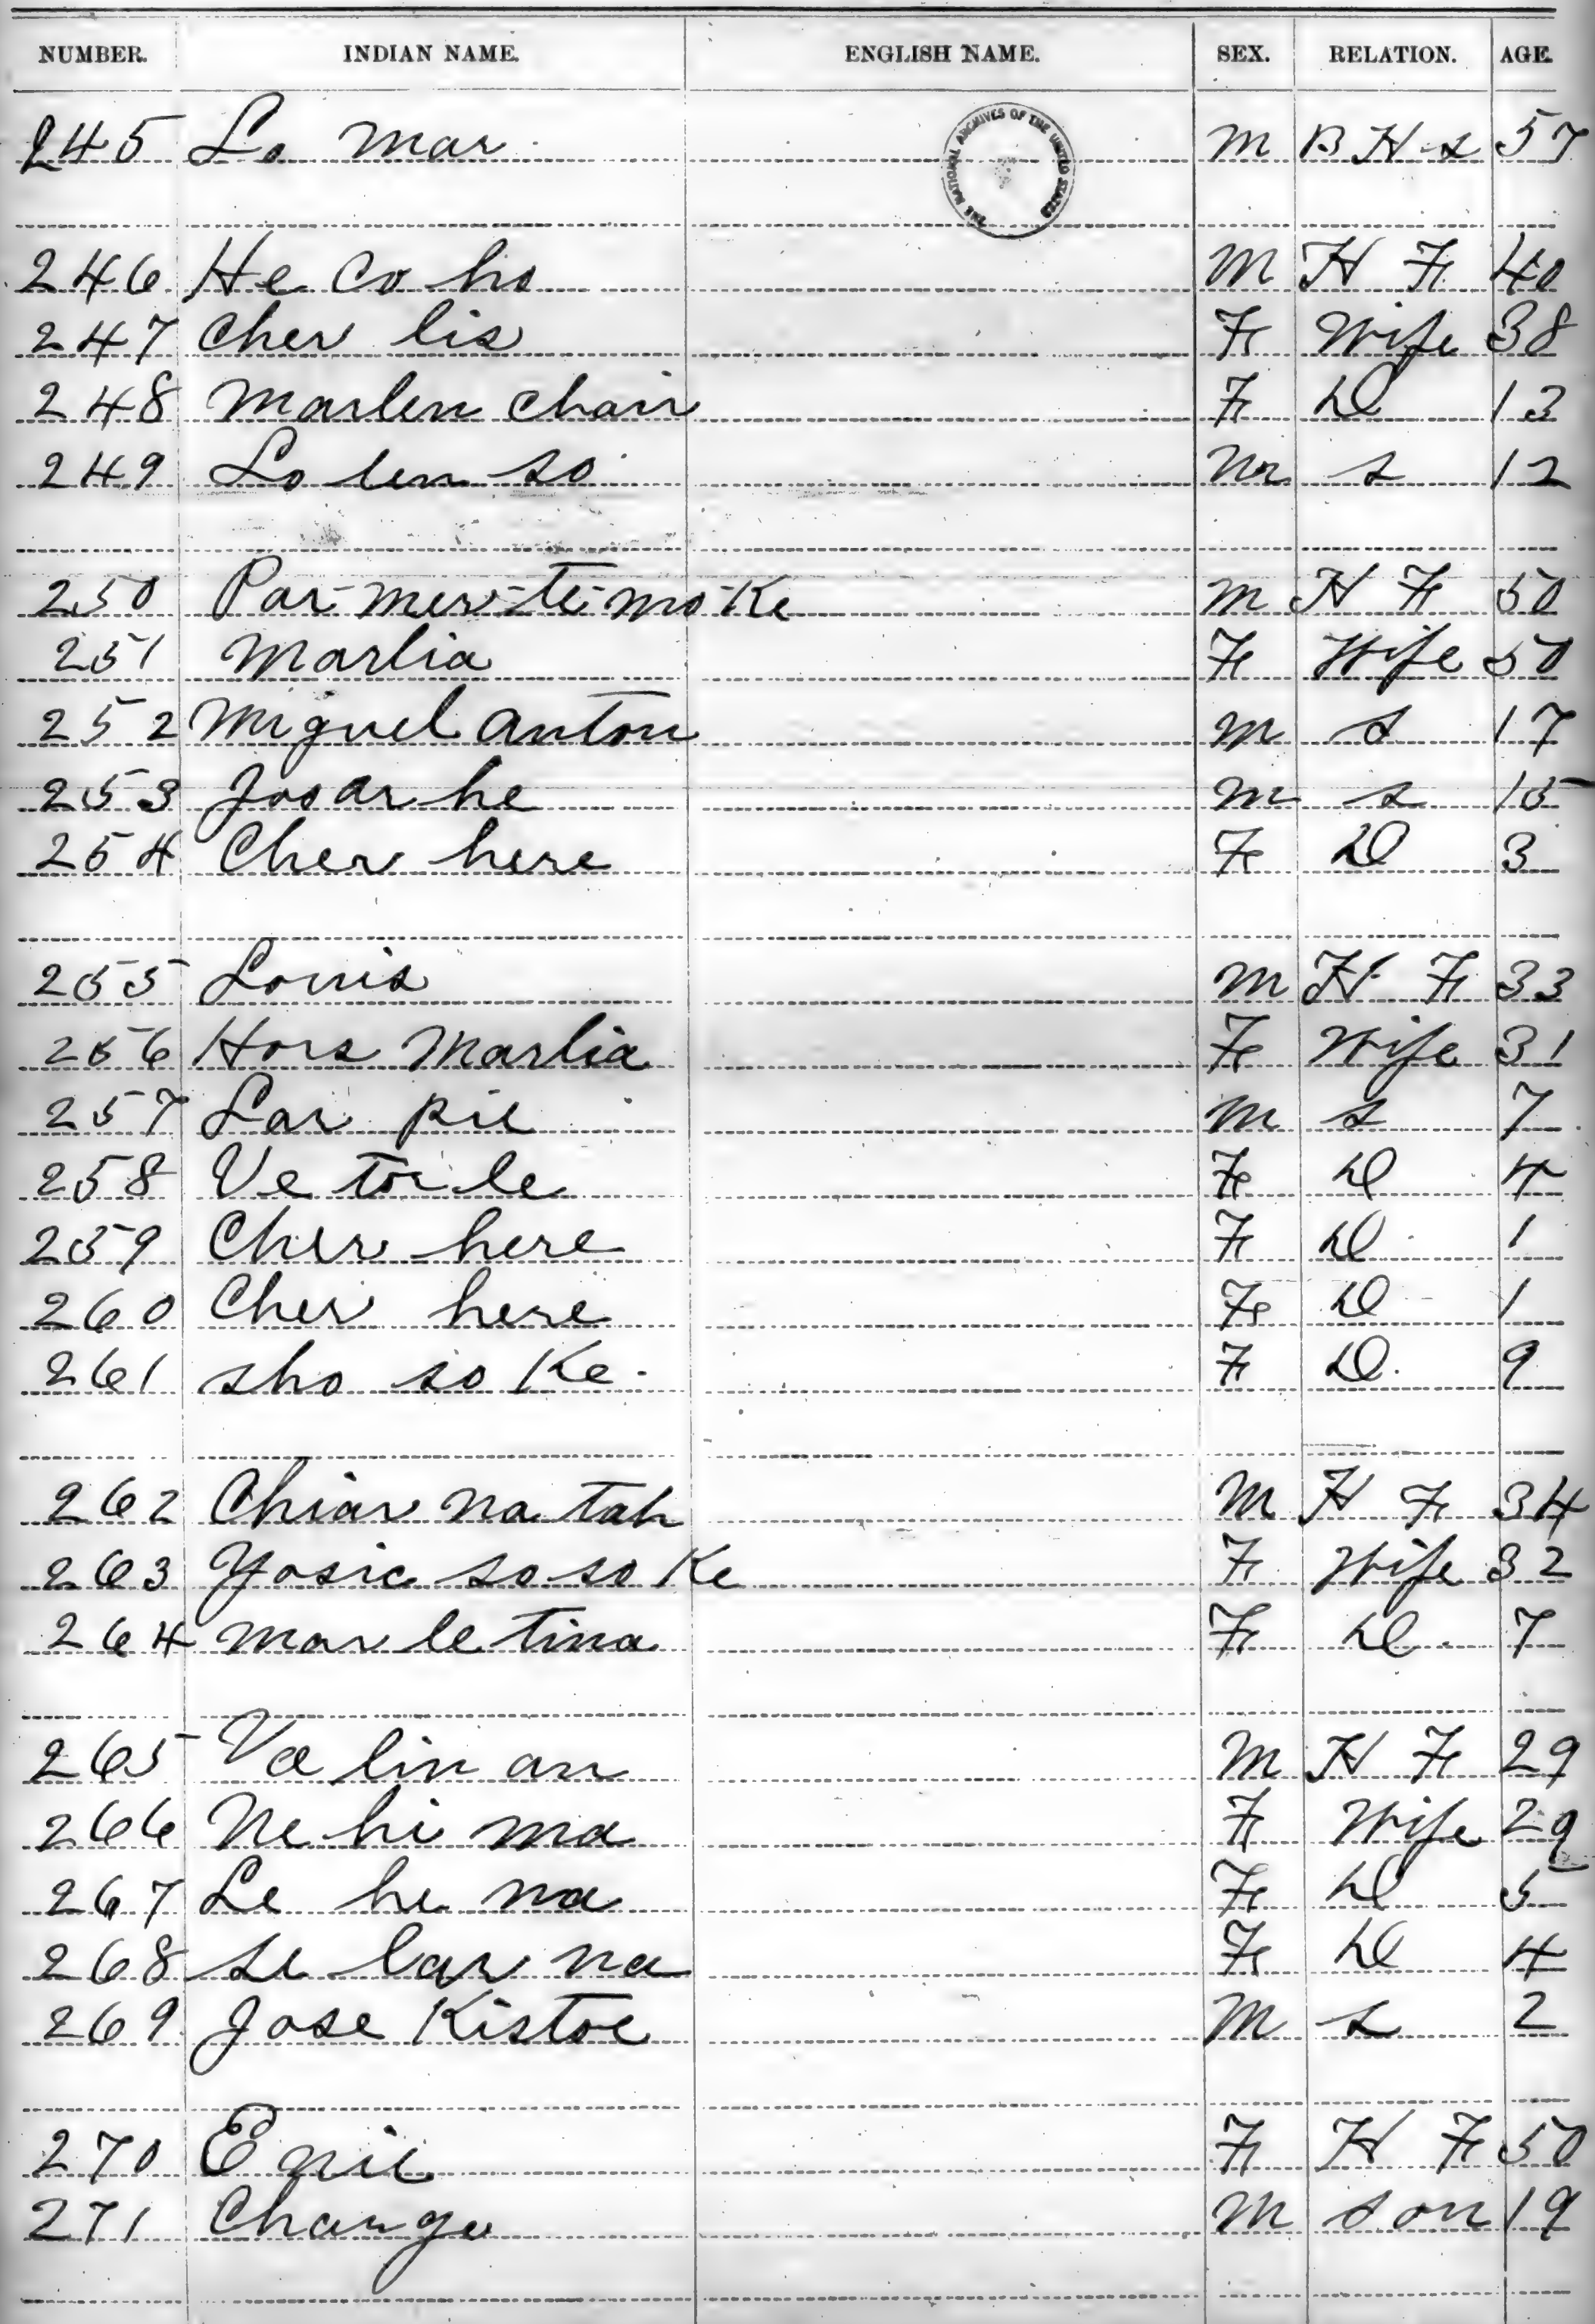 NUMBER. INDIAN NAME. ENGLISH NAME. SEX. RELATION. AGE.
THE NATIONAL ARCHIVES OF THE UNITED STATES
245 Lo mar M B H s 57
246 He Co ho M H F 40
247 Cher lis F Wife 38
248 Marlen Chair F D 13
249 Lo len so M s 12
250 Par-mer-te-mo-Ke M H F 50
251 Marlia F Wife 50
252 Miguel Anton M s 17
253 Joo ar he M s 15
254 Cher here F D 3
255 Louis M H F 33
256 Hors Marlia F Wife 31
257 Lar pie M s 7
258 Ve tor le F D 4
259 Cher here F D 1
260 Cher here F D 1
261 Sho so Ke F D 9
262 Chiar na tah M H F 34
263 Yosie so so Ke F Wife 32
264 Mar le tina F D 7
265 Va lin an M H F 29
266 Ne hi ma F Wife 29
267 Le he na F D 5
268 Se lar na F D 4
269 Jose Kistoe M s 2
270 F H F 50
271 Change M Son 19